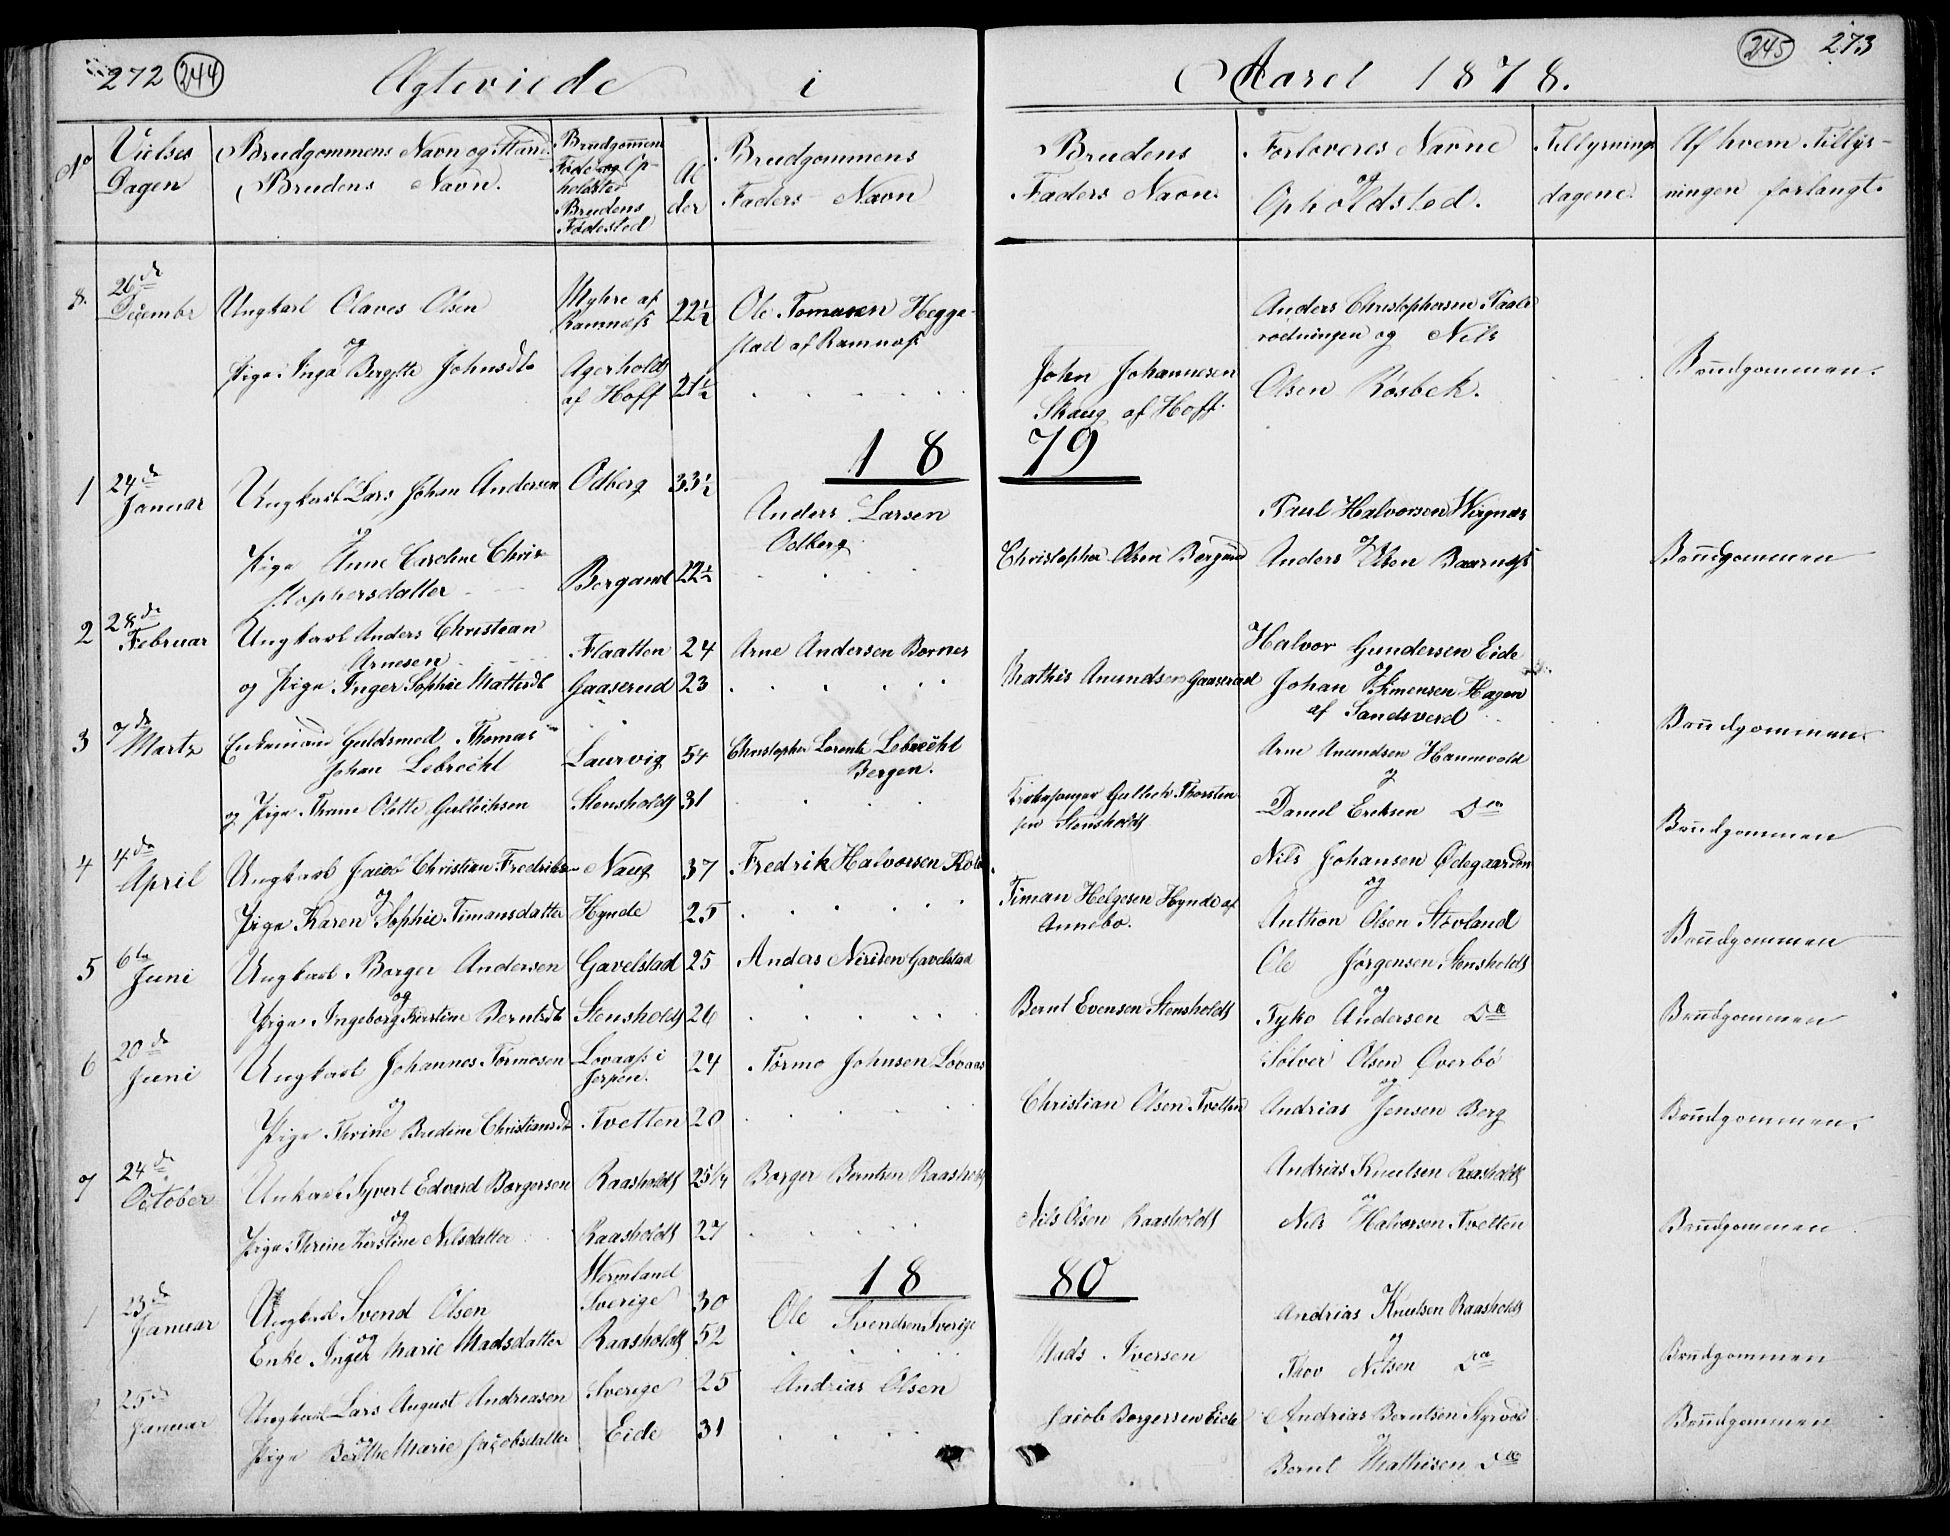 272 (244) Ægteviede i Aaret 1878. (245) 273
No
Vielses Dagen
Brudgommens Navn og Stand. Brudens Navn.
Brudgommens Føde og Opholdsted Brudens Fødested
Alder
Brudgommens Faders Navn
Brudens Faders Navn.
Forloveres Navne og Opholdsted.
Tillysnings dagene.
Af hvem Tillysningen forlangt.
8. 26de Decembr Ungkarl Olaves Olsen Myhre af Ramnæs 22½ Ole Tomasen Heggestad af Ramnæs Anders Christophersen Taalerødningen og Nils
og
Pige Inga Bergitte Johnsdt Agerholdt af Hoff 21½ John Johannesen Skaug af Hoff. Olsen Røsbek. Brudgommen.
18 79
1 24de Januar Ungkarl Lars Johan Andersen Odberg 33½ Anders Larsen Odberg Paul Halvorsen Wegnæs
og
Pige Anne Christophersdatter Bergand 22½ Christopher Olsen Bergand Anders Olsen Baarnæs Brudgommen
2 28de Februar Ungkarl Anders Christian Arnesen Flaatten 24 Arne Andersen Bornes Halvor Gundersen Eide
og Pige Inger Sophie Mathisdt Gaaserud 23 Mathis Amundsen Gaaserud Johan Simensen Hagen af Sandsverd Brudgommen.
3 7de Marts Enkemand Guldsmed Thomas Johan Lebrecht Laurvig 54 Christopher Lorentz Lebrecht Bergen. Arne Anundsen Hanevold
og
og Pige Thrine Olette Gullichsen Stensholdt 31 Kirkesanger Gullich Thorstensen Stensholdt Daniel Eriksen Do Brudgommen
4 4de April Ungkarl Jacob Christian Fredriksen Naug 37 Fredrik Halvorsen Nils Johansen Ødegaarden
og
Pige Karen Sophie Timansdatter Hynde 25 Timan Helgesen Hynde af Annebo. Anthon Olsen Støvland Brudgommen
5 6te Juni Ungkarl Borger Andersen Gavelstad 25 Anders Nirisen Gavelstad Ole Jørgensen Stensholdt
og
Pige Ingeborg Kirstine Berntsdt Stensholdt 26 Bernt Evensen Stensholdt Tyko Andersen Do Brudgommen
6 20de Juni Ungkarl Johannes Tormosen Lovaas i Jerpen. 24 Tormo Johnsen Lovaas Sølver Olsen Øverbø
og
Pige Thrine Bredine Christiansdt Tvetten 20 Christian Olsen Tvetten Andrias Jensen Berg Brudgommen.
7 24de October Unkarl Syvert Edvard Borgersen Raasholdt 25¼ Borger Berntsen Raasholdt Andrias Knutsen Raasholdt
og
Pige Thrine Kirstine Nilsdatter Raasholdt 27 Nils Olsen Raasholdt Nils Halvorsen Tvetten Brudgommen
18 80
1 23de Januar Ungkarl Svend Olsen Wermland Sverige 30 Ole Svendsen Sverige Andrias Knutsen Raasholdt
og
Enke Inger Marie Madsdatter Raasholdt 52 Mads Iversen Thov Nilsen Do Brudgommen
25de Januar Ungkarl Lars August Andreasen Sverige 25 Andrias Olsen Andrias Berntsen
og
Pige Berthe Marie Jacobsdatter Eide 31 Jacob Borgersen Eide Bernt Mathisen Do Brudgommen